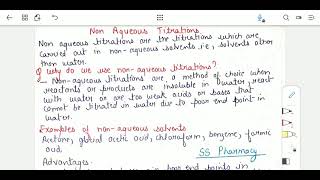 Non Aqueous Titrations
Non aqueous titrations are the titrations which are
carried out in non-aqueous solvents i.e, solvents other
than water.
Q Why do we use non-aqueous titrations?
→ Non-aqueous titrations are, a method of choice when
reactants or products are insoluble in water, react
with water or are too weak acids or bases that
cannot be titrated in water due to poor end point in
water.
Examples of non-aqueous solvents
Acetone, glacial acetic acid, chloroform, benzene, formic
acid.
SS Pharmacy
Advantages:
end points in